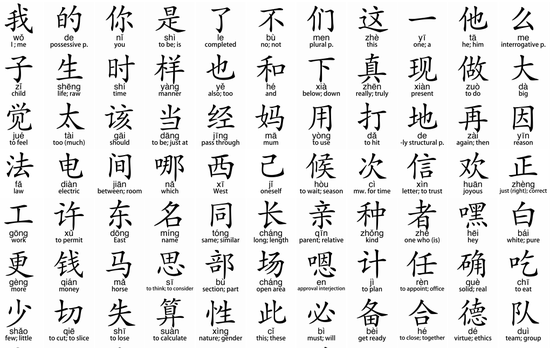 我 的 你 是 了 不 们 这 一 他 么
wǒ de nǐ shì le bù men zhè yī tā me
I; me possessive p. you to be; is completed no; not plural p. this one; a he; him interrogative p.
子 生 时 样 也 和 下 真 现 做 大
zǐ shēng shí yàng yě hé xià zhēn xiàn zuò dà
child life; raw time manner also; too and below; down really; truly present to do big
觉 太 该 当 经 妈 用 打 地 再 因
jué tài gāi dāng jīng mā yòng dǎ de zài yīn
to feel too (much) should to be; just at pass through mum to use to hit -ly structural p. again; then reason
法 电 间 哪 西 己 候 次 信 欢 正
fǎ diàn jiān nǎ xī jǐ hòu cì xìn huān zhèng
law electric between; room which West oneself to wait; season mw. for time letter; to trust joyous just (right); correct
工 许 东 名 同 长 亲 种 者 嘿 白
gōng xǔ dōng míng tóng cháng qīn zhǒng zhě hēi bái
work to permit East name same; similar long; length parent; relative kind one who (is) hey white; pure
更 钱 马 思 部 场 嗯 计 任 确 吃
gèng qián mǎ sī bù chǎng en jì rèn què chī
more money horse to think; to consider section; part open area approval interjection to plan to appoint; office solid; real to eat
少 切 失 算 性 此 必 备 合 德 队
shǎo qiē shī suàn xìng cǐ bì bèi hé dé duì
few; little to cut; to slice to lose to calculate nature; gender this; these must; will get ready to close; together virtue; ethics team; group